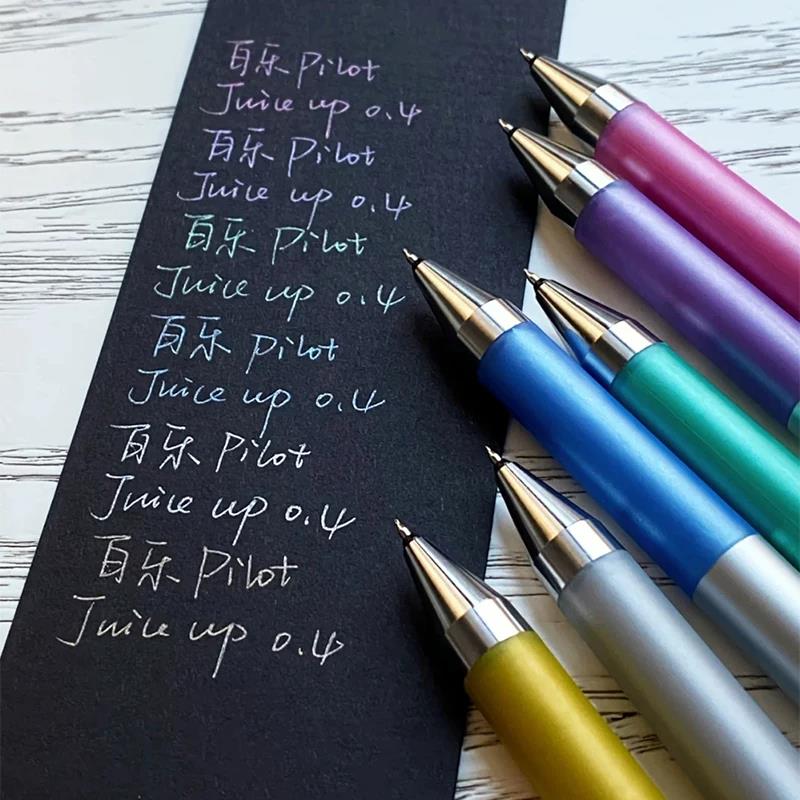 百乐 Pilot
Juice up 0.4
百乐 Pilot
Juice up 0.4
百乐 Pilot
Juice up 0.4
百乐 Pilot
Juice up 0.4
百乐 Pilot
Juice up 0.4
百乐 Pilot
Juice up 0.4